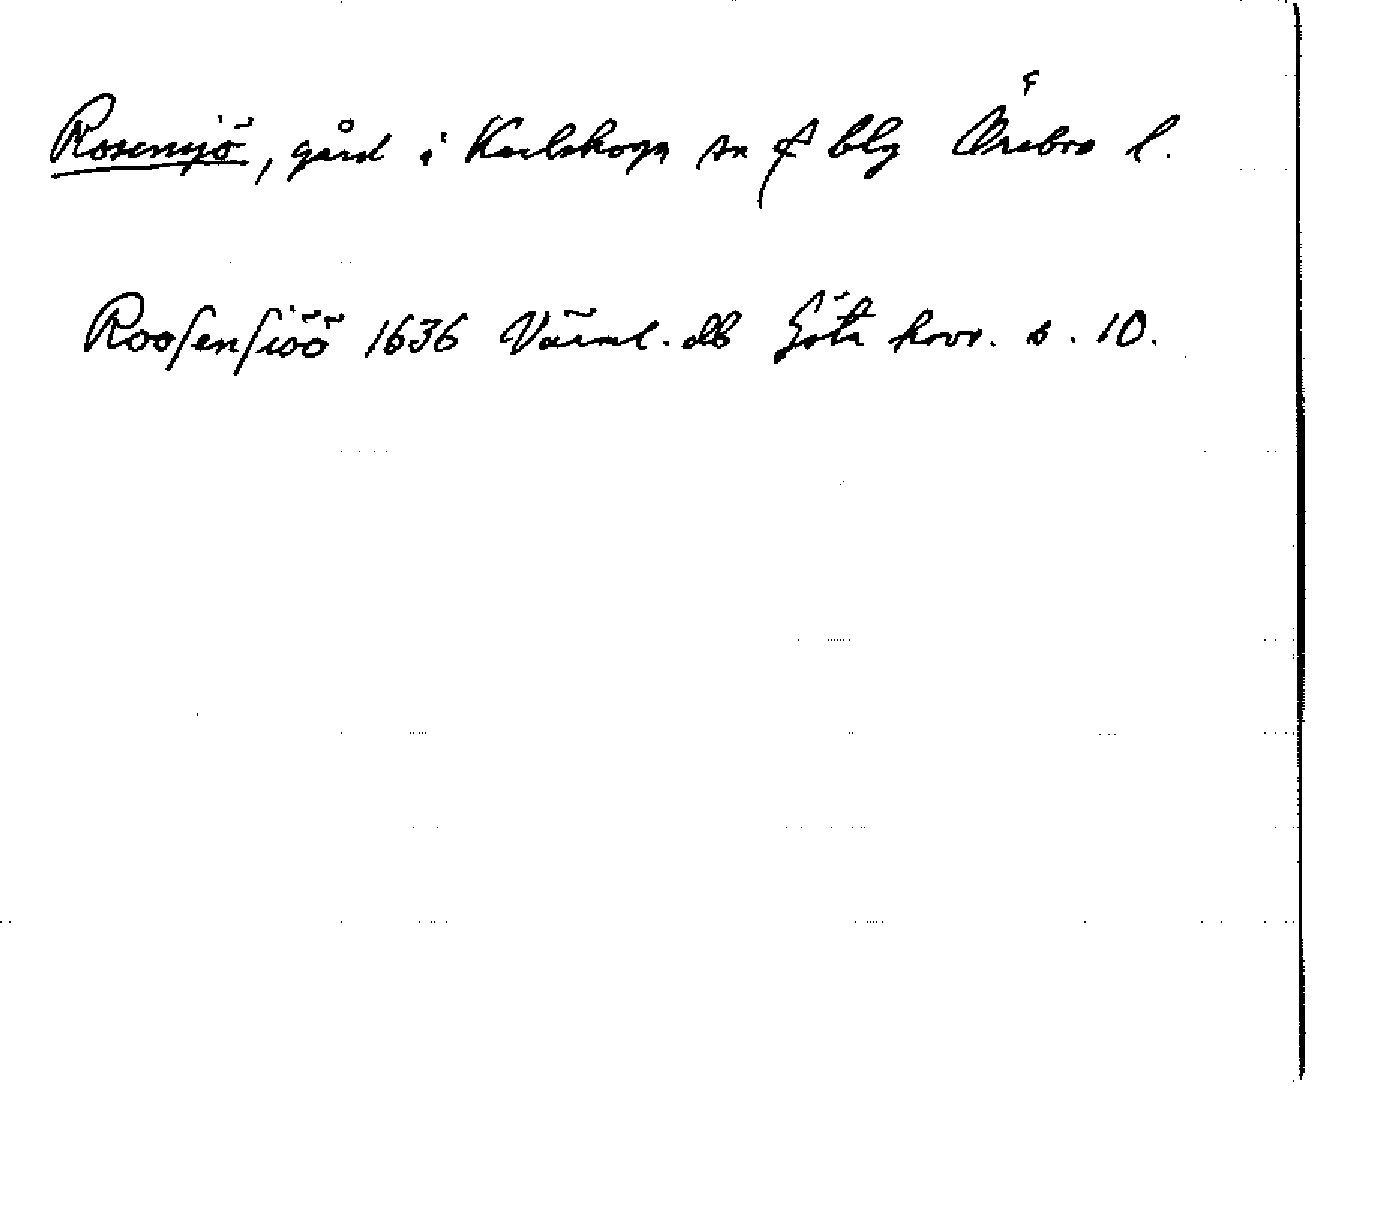 F
Rosensjö, gård i Karlskoga sn o blg Örebro l.
Roosensiöö 1636 Värml. db Göta hovr. s. 10.